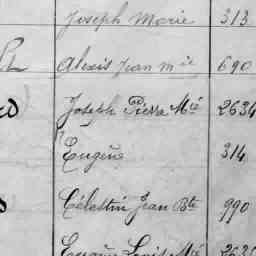 Joseph Marie 313
Alexis Jean Mie 690
Joseph Pierre Mie 2634
Eugène 314
Célestin Jean Bte 990
Eugène Louis Mie 2635